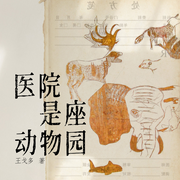 医院
是座
动物园
王戈多 著